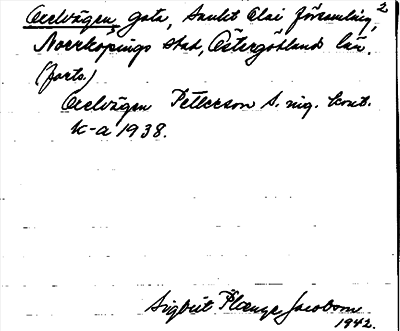 2
Ocelvägen, gata, Sankt Olai församling,
Norrköpings stad, Östergötlands län.
(forts.)
Ocelvägen Petterson S. ing. kont.
k-a 1938.
Sigbrit Plænge Jacobson
1942.